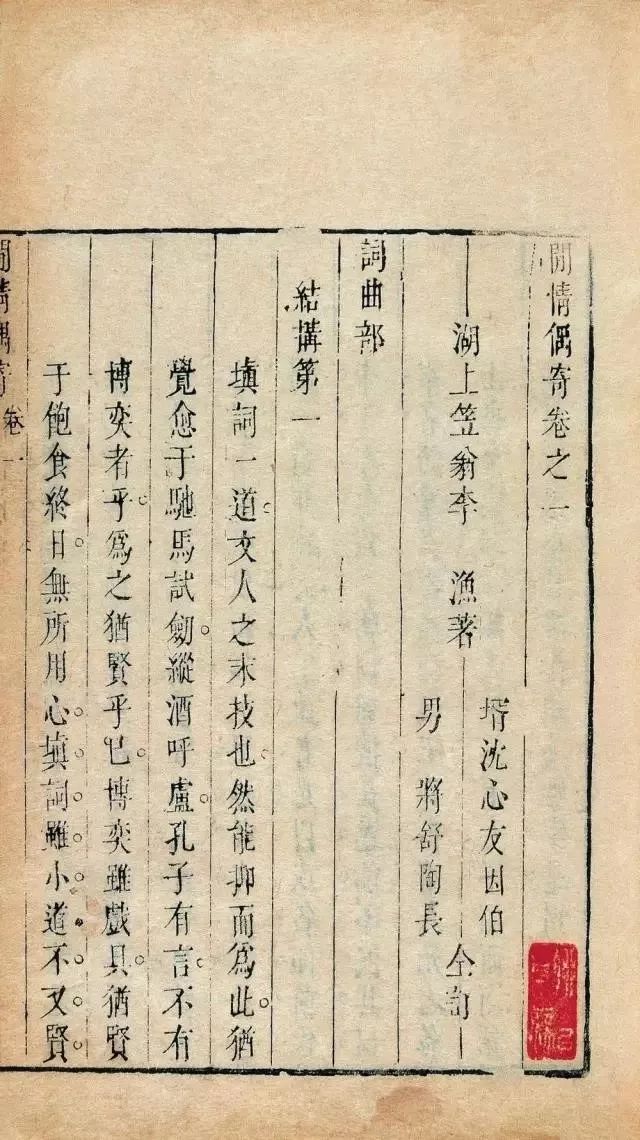 閒情偶寄卷之一
湖上笠翁李　漁著
壻沈心友因伯
男　將舒陶長
仝訂
詞曲部
結搆第一
填詞一道。文人之末技也。然能抑而爲此。猶
覺愈于馳馬試劒。縱酒呼盧。孔子有言。不有
博奕者乎。爲之猶賢乎已。博奕雖戲具。猶賢
于飽食終日。無所用心。填詞雖小道。不又賢
閒情偶寄　卷一